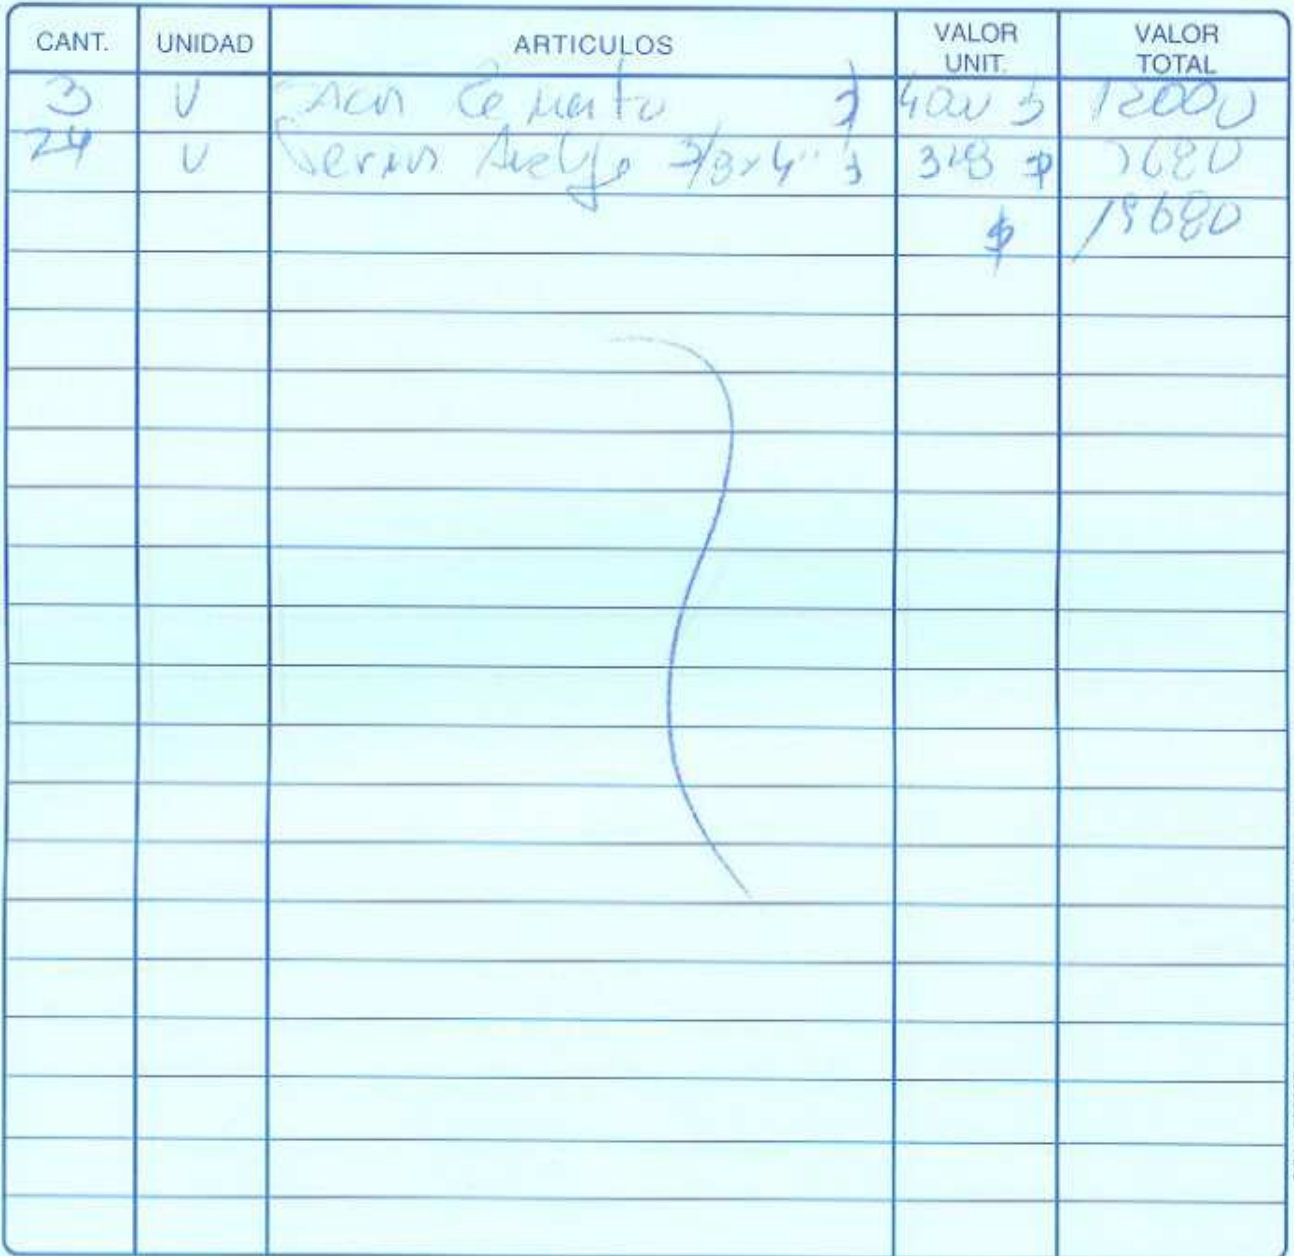 CANT. UNIDAD ARTICULOS VALOR UNIT. VALOR TOTAL
3 U Saco Cemento $ 4000 $ 12000
24 U Pernos Anclaje 3/8x4" $ $ 7680
$ 19680